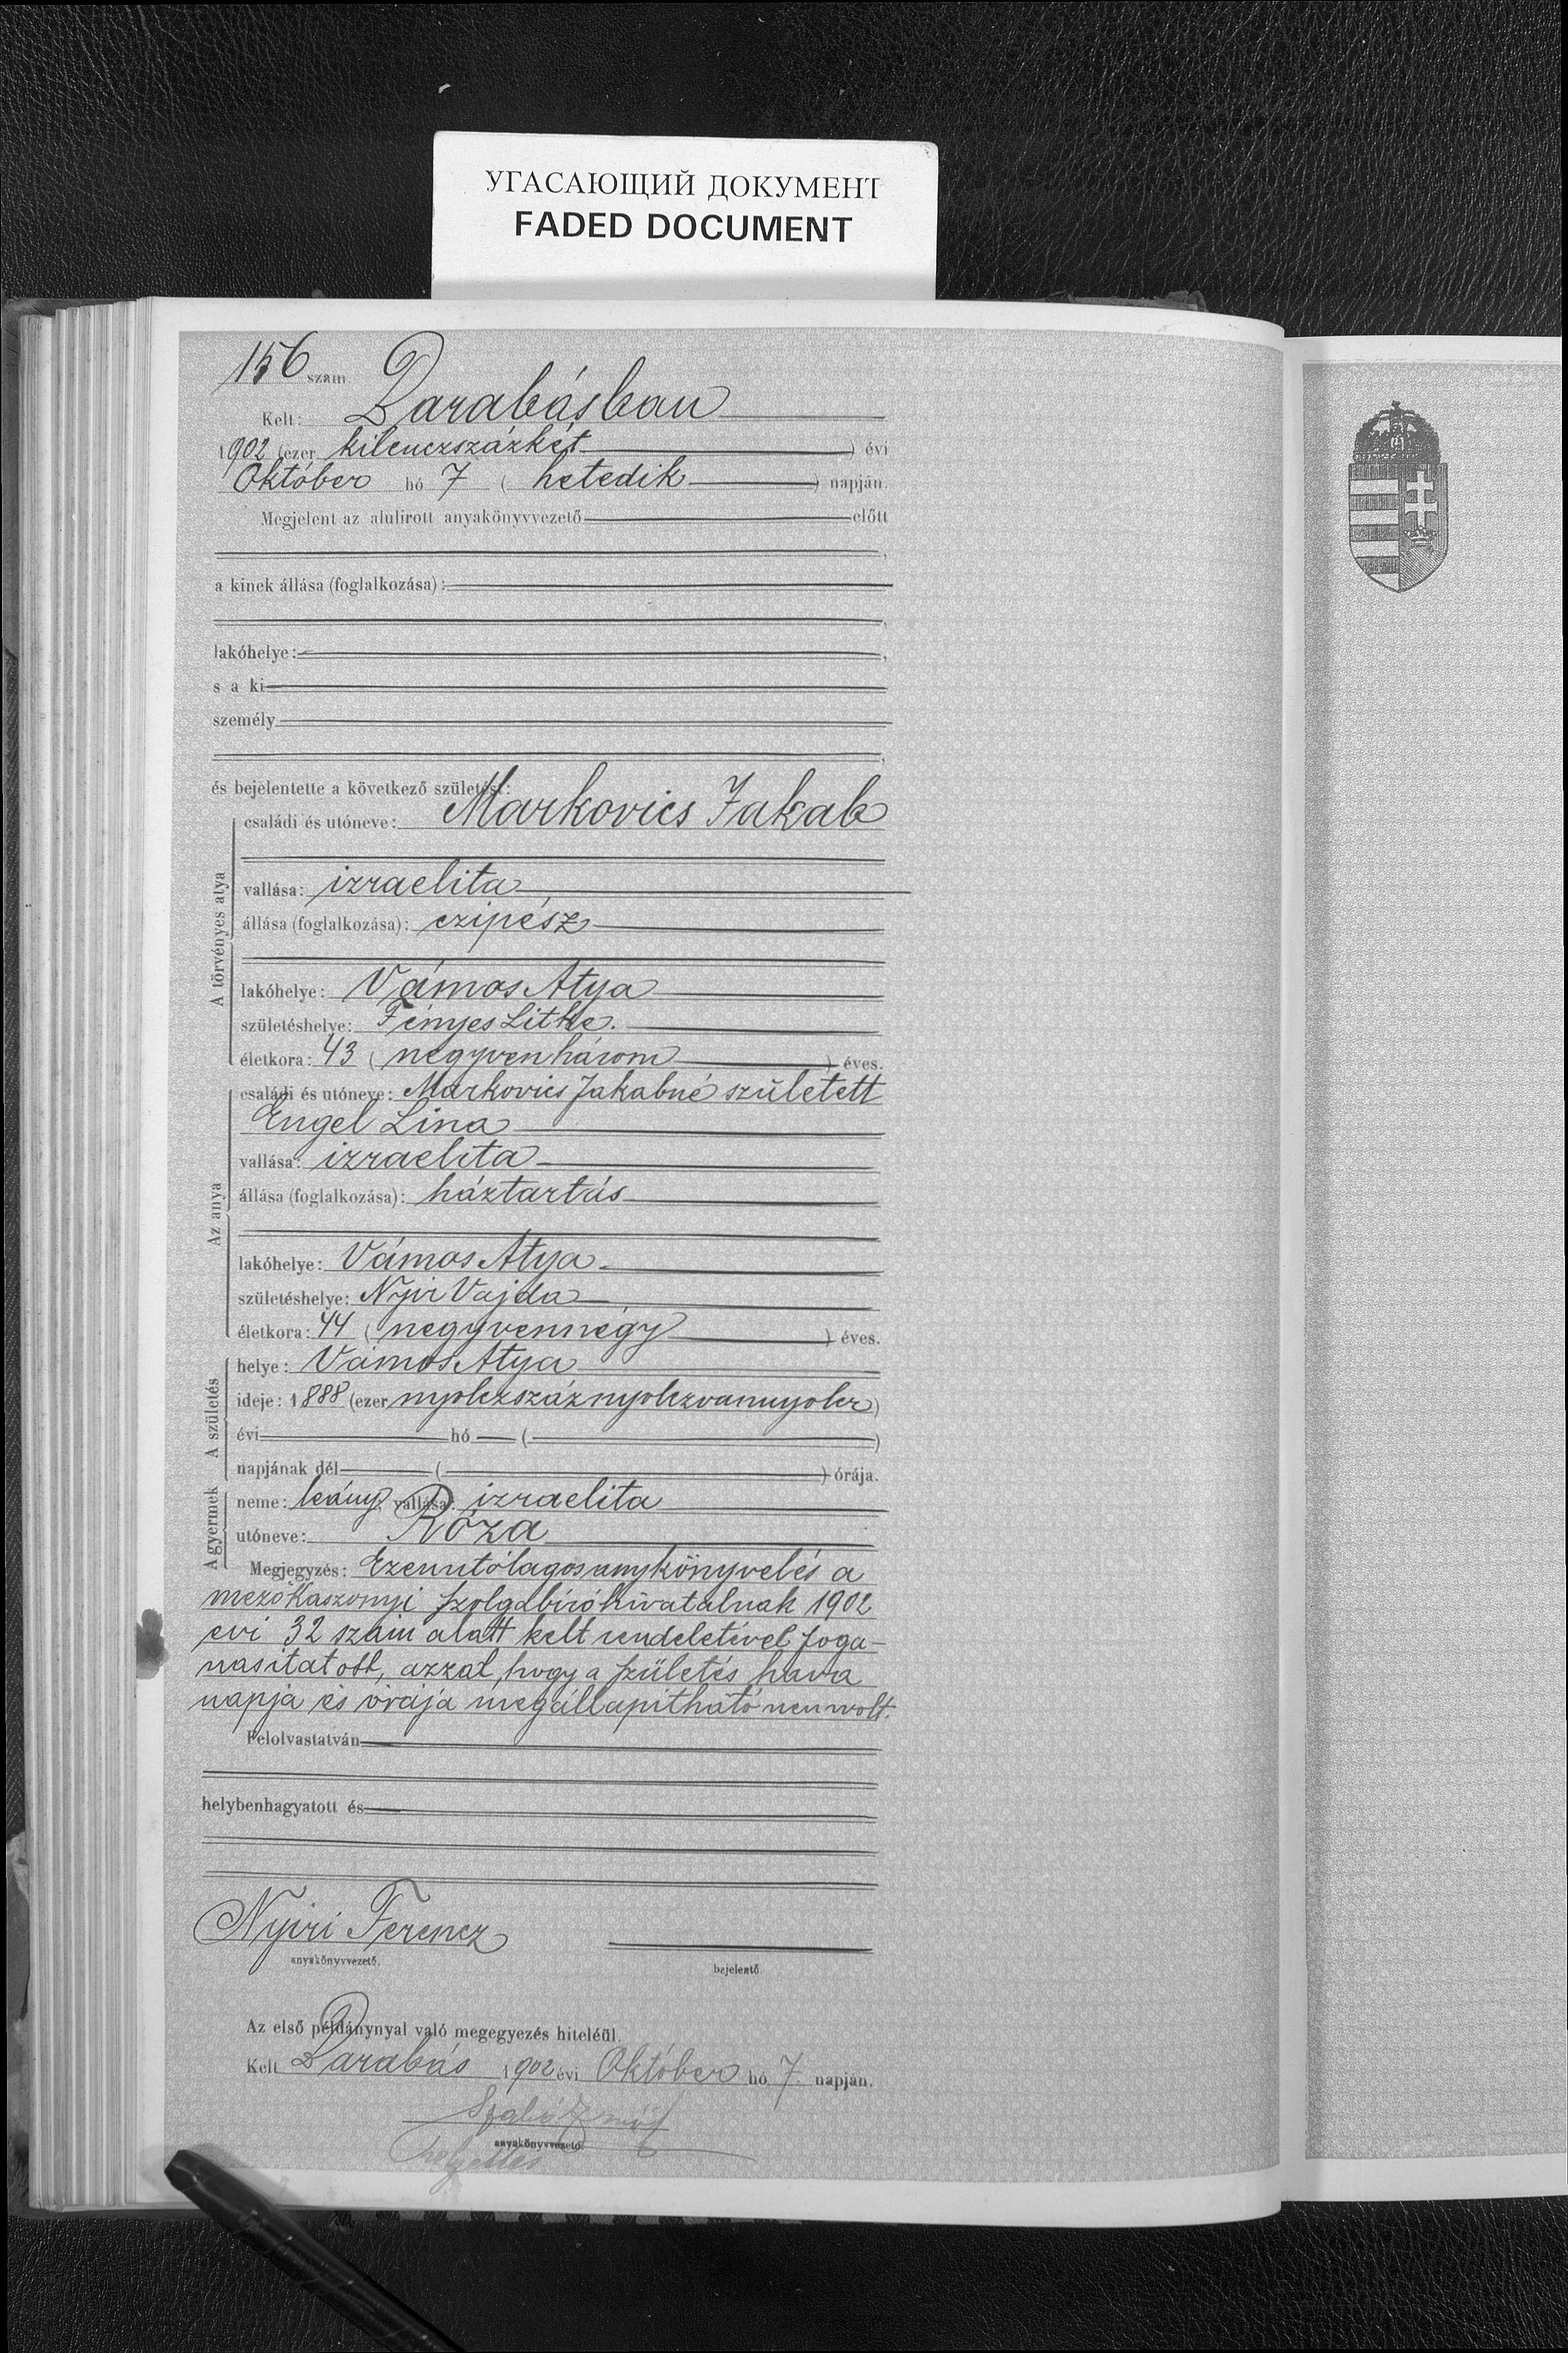 УГАСАЮЩИЙ ДОКУМЕНТ
FADED DOCUMENT
156 szám.
Kelt: Barabásban
1902 (ezer kilenczszázkét) évi
Október hó 7 (hetedik) napján.
Megjelent az alulirott anyakönyvvezető előtt
,
a kinek állása (foglalkozása):
,
lakóhelye: ,
s a ki
személy
,
és bejelentette a következő születést:
A törvényes atya
családi és utóneve: Markovics Jakab
vallása: izraelita
állása (foglalkozása): czipész
lakóhelye: Vámos Atya
születéshelye: Fényes Litke.
életkora: 43 (negyvenhárom) éves.
Az anya
családi és utóneve: Markovics Jakabné született
Engel Lina
vallása: izraelita
állása (foglalkozása): háztartás
lakóhelye: Vámos Atya
születéshelye: Nyir Vajda
életkora: 44 (negyvennégy) éves.
A születés
helye: Vámos Atya
ideje: 1888 (ezer nyolczszáznyolczvannyolcz)
évi hó ( )
napjának dél ( ) órája.
A gyermek
neme: leány, vallása: izraelita
utóneve: Róza
Megjegyzés: Ezen utólagos anykönyvelés a
mezőkaszonyi szolgabíró hivatalnak 1902
évi 32 szám alatt kelt rendeletével foga-
nasitatott, azzal, hogy a születés hava
napja és órája megállapitható nem volt.
Felolvastatván
helybenhagyatott és
Nyiri Ferencz
anyakönyvvezető. bejelentő.
Az első példánynyal való megegyezés hiteléül.
Kelt Barabás 1902 évi Október hó 7 napján.
Szabó
anyakönyvvezető
helyettes